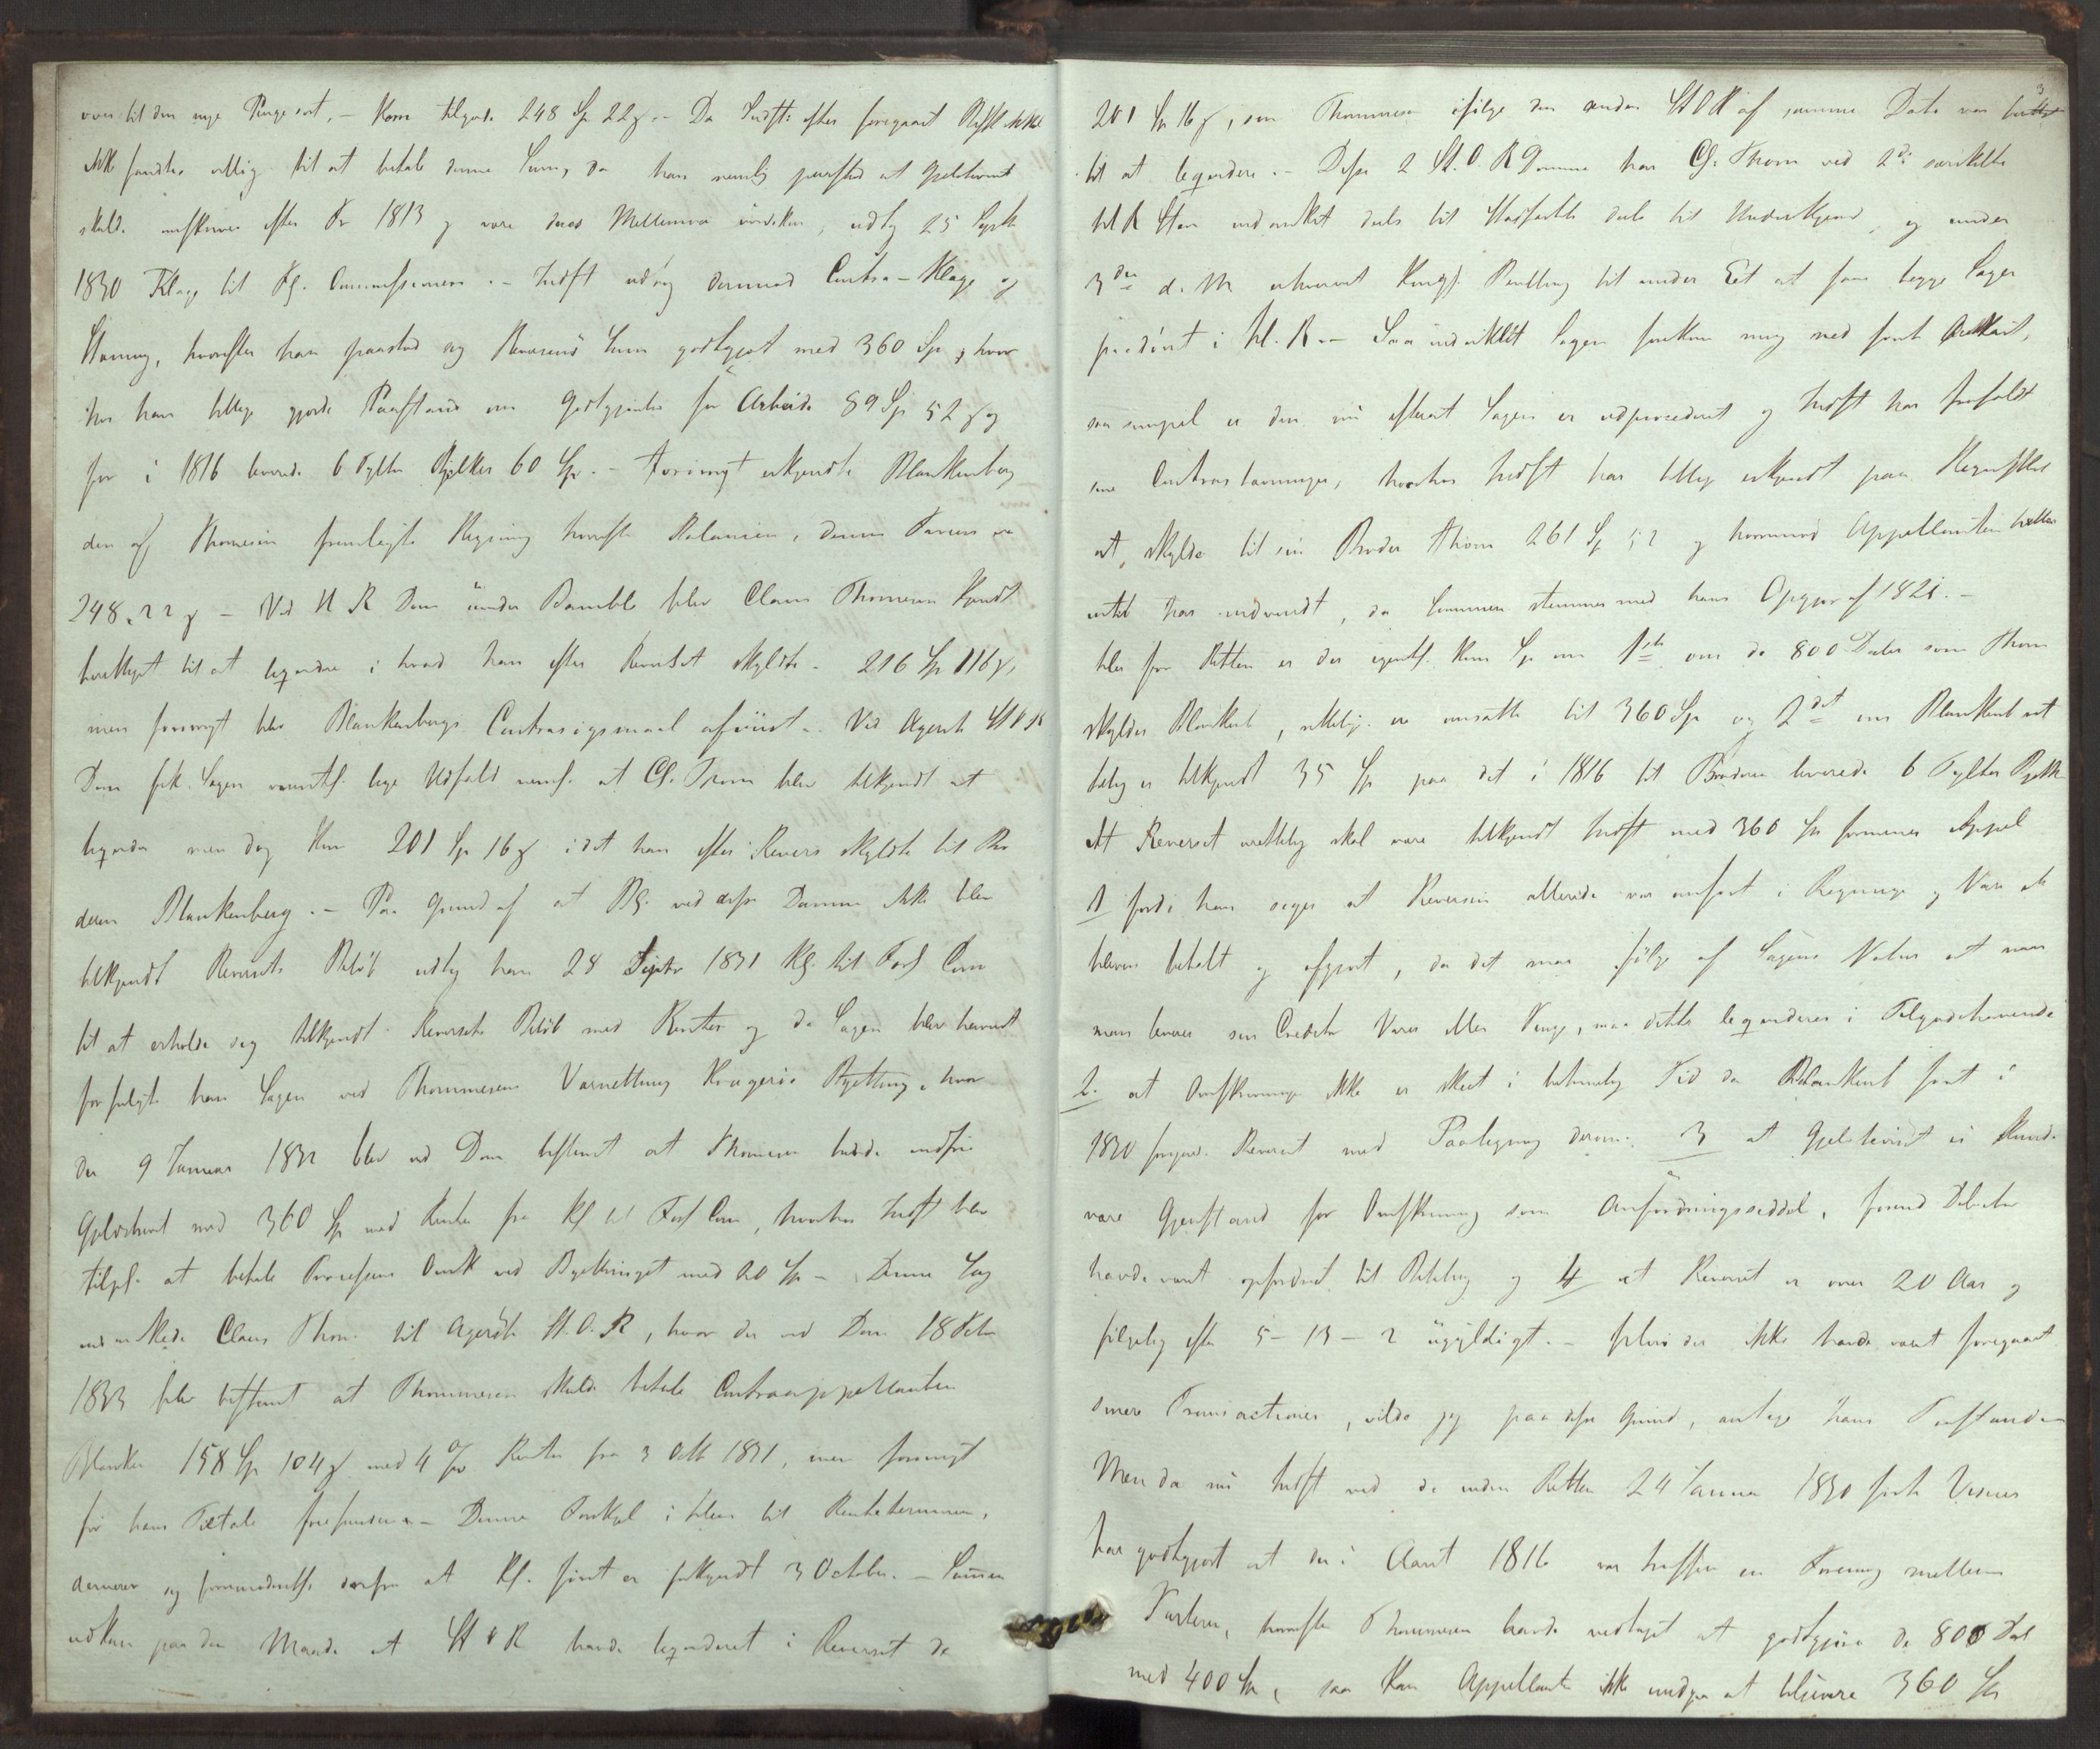 over til den nye Pengesort, – kom tilgode 248 Sp 22 ß. – Da Indst: efter foregaaet
ikke fandtes villig til at betale denne Sum, da han nemlig paastod at Gjeldsbeviset
skulde nedskrives efter Fr 1813 og være deres Mellemvær, udtog 25 Septb
1830 Klage til Fl. Commissionen. – Indst udtog derimod Contra-Klage og
Stevning, hvorefter han paastod sig Reversens Sum godtgjort med 360 Sp, hvor
hos han tillige gjorde Paastand om Godtgjørelse for Arbeide 89 Sp 52 ß og
for i 1816 leverede 6 Tylter Bjelker 60 Sp. – Forøvrigt erkjendte Blankenberg
den af Thomesen fremlagte Regning hvorefter Balancen, dennes Faveur var
248. 22 ß – Ved U R Dom under Bamble blev Claus Thomesen kjendt
berettiget til at liqvidere i hvad han efter Reverset skyldte – 216 Sp 116 ß,
men forøvrigt blev Blankenbergs Contrasøgsmaal afviist. – Ved Agers St O R
Dom fik Sagen væsentl. lige Udfald neml. at Cl. Thom blev tilkjendt at
liqvidere men dog kun 201 Sp 16 ß i det han efter Revers skyldte til Bro
deren Blankenberg. – Paa Grund af at Bl. ved disse Domme ikke blev
tilkjendt Reversets Beløb udtog han 28 Septbr 1831 Kl. til Forl Com
til at erholde sig tilkjendt Reversets Beløb med Renter og da Sagen blev henviist
forfulgte han Sagen ved Thommesens Værnething Kragerø Byething, hvor
den 9 Januar 1832 blev ved Dom bestemt at Thomesen burde indfrie
Gjeldsbeviset med 360 Sp med Renter fra Kl til Forl Com, hvorhos Indst blev
tilpl. at betale Processens Omk ved Byethinget med 20 Sp – Denne Sag
indankede Claus Thom. til Agers St. O. R, hvor der ved Dom 18 Febr
1833 blev bestemt at Thommesen skulde betale Contraappellanten
Blanken 158 Sp 104 ß med 4 % Renter fra 3 Octb 1831, men forøvrigt
for hans Tiltale frifindes. – Denne Forskjel i Tiden til Rentetermin,
deriverer sig formodentl. derfra at Kl. først er forkyndt 3 October. – Summen
udkom paa den Maade at St O R havde liqvideret i Reverset de
3
201 Sp 16 ß, som Thommesen ifølge den anden St O R af samme Dato var
til at liqvidere. – Disse 2 St. O. R Domme har Cl. Thom ved 2de særskilte
H R Stevn indanket deels til Stadfæstelse deels til Underkjend, og under
3die d. M. erhvervet Kongl. Bevilling til under Eet at faae begge Sager
paadømt i H. R. – Saa indviklet Sagen forekom mig ved først Øiekast,
saa simpel er den nu efterat Sagen er udprocederet og Indst har frafaldt
sine Contrastevninger, hvorhos Indst har tillige erkjendt paa
at skylde til sin Broder Thom 261 Sp 52 og hvorimod Appellanten heller
intet har indvendt, da Summen stemmer med hans Opgjør af 1821. –
her for Retten er der egentl. kun Sp om 1ste om de 800 Daler som Thom
skylder Blankenb, rettelig er ansatte til 360 Sp og 2det om Blankenb ret
telig er tilkjendt 35 Sp for det i 1816 til Broderen leverede 6 Tylter Bjelk
At Reverset urettelig skal være tilkjendt Indst med 360 Sp formener Appel
1 fordi han siger at Reversen allerede var anført i Regninge og Vare
bleven betalt og afgjort, da det maa følge af Sagens Natur at naar
man leverer sin Creditor Varer eller Penge, maa dette liqvideres i Tilgodehavende
2. at Omskrivninge ikke er skeet i betimelig Tid da Blankenb først i
1830 foreviste Reverset med Paategning derom. 3 at Gjeldsbeviset ei kunde
være Gjenstand for Omskrivning som Anfordringsseddel, førend Debitor
havde været opfordret til Betaling og 4 at Reverset er over 20 Aar og
følgelig efter 5 – 13 – 2 ugyldigt. – hvis der ikke havde været foregaaet
disse Transactioner, vilde jeg paa disse Grunde, antage hans Paastande
Men da nu Indst ved de inden Retten 24 Januar 1830 førte Vidner
har godtgjort at der i Aaret 1816 var truffen en Forening mellem
Parterne, hvorefter Thommesen havde vedtaget at godtgjøre de 800 Dal
med 400 Sp, saa kan Appellanten ikke undgaa at tilsvare 360 Sp